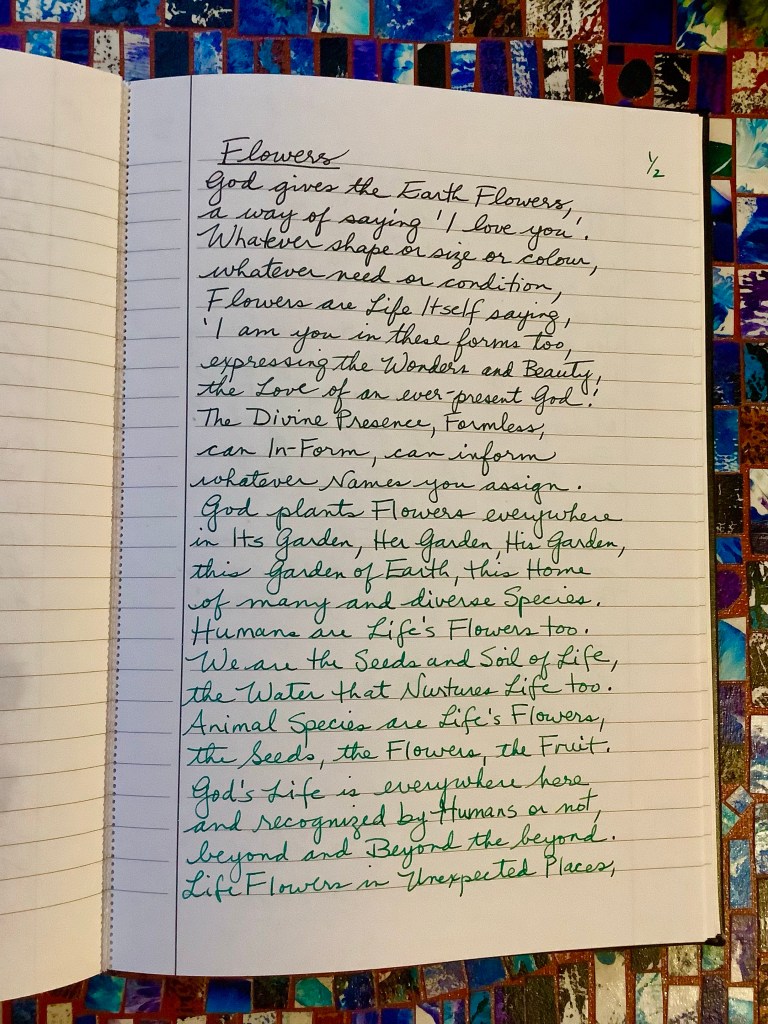 Flowers
1/2
God gives the Earth Flowers,
a way of saying 'I love you'.
Whatever shape or size or colour,
whatever need or condition,
Flowers are Life Itself saying,
'I am you in these forms too,
expressing the Wonders and Beauty,
the Love of an ever-present God.'
The Divine Presence, Formless,
can In-Form, can inform
whatever Names you assign.
God plants Flowers everywhere
in Its Garden, Her Garden, His Garden,
this Garden of Earth, this Home
of many and diverse Species.
Humans are Life's Flowers too.
We are the Seeds and Soil of Life,
the Water that Nurtures Life too.
Animal Species are Life's Flowers,
the Seeds, the Flowers, the Fruit.
God's Life is everywhere here
and recognized by Humans or not,
beyond and Beyond the beyond.
Life Flowers in Unexpected Places,